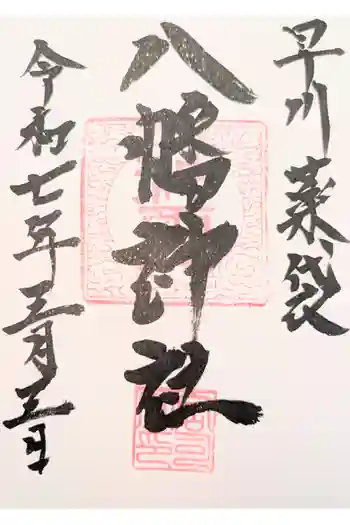 早川薬袋
八幡神社
令和七年三月三日